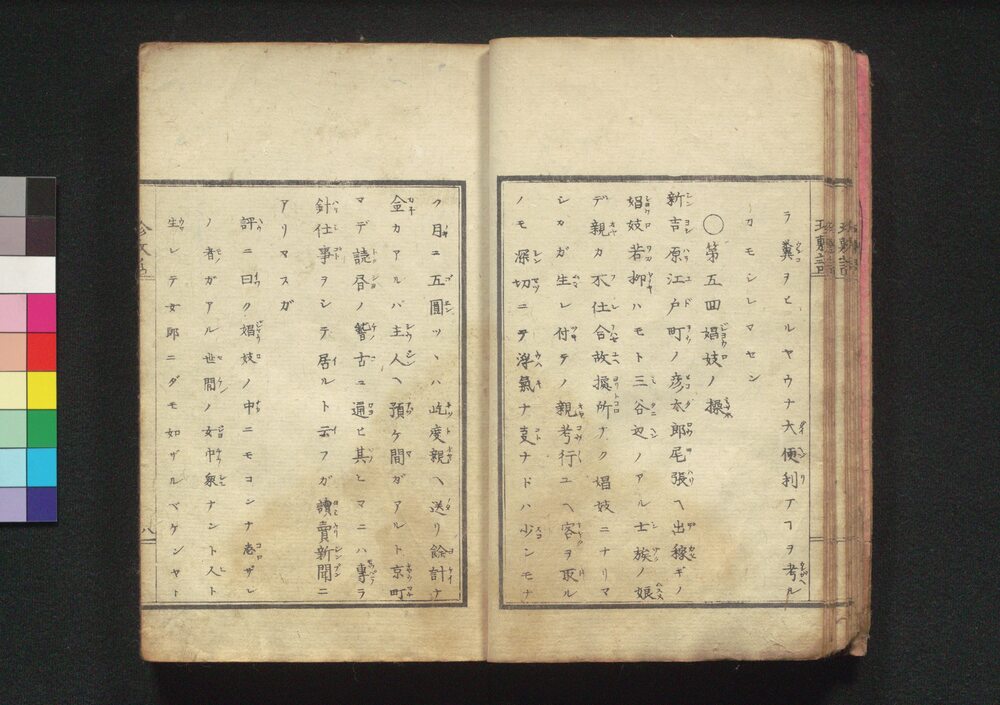 ラ糞ヲヒルヤウナ大便利ナヿヲ考ル
カモシレマセン
○第五回娼妓ノ操
新吉原江戸町ノ彦太郎尾張ヘ出稼ギノ
娼妓若柳ハモト三谷辺ノアル士族ノ娘
デ親カ不仕合故據所ナク娼妓ニナリマ
シカガ生レ付テノ親考行ユヘ客ヲ取ル
ノモ深切ニテ浮氣ナ支ナドハ少ンモナ
ク月ニ五圓ツヽハ屹度親ヘ送リ餘計ナ
金カアルバ主人ヘ預ケ間ガアルト京町
マデ讀昼ノ䅲古ユ通ヒ其ヒマニハ專ラ
針仕事ヲシテ居ルト云フガ讀賣新聞ニ
アリマスガ
評ニ曰ク娼妓ノ中ニモコンナ
ノ者ガアル世間ノ女中衆ナントスト
生レテ女郎ニダモ如ザルベケンヤト